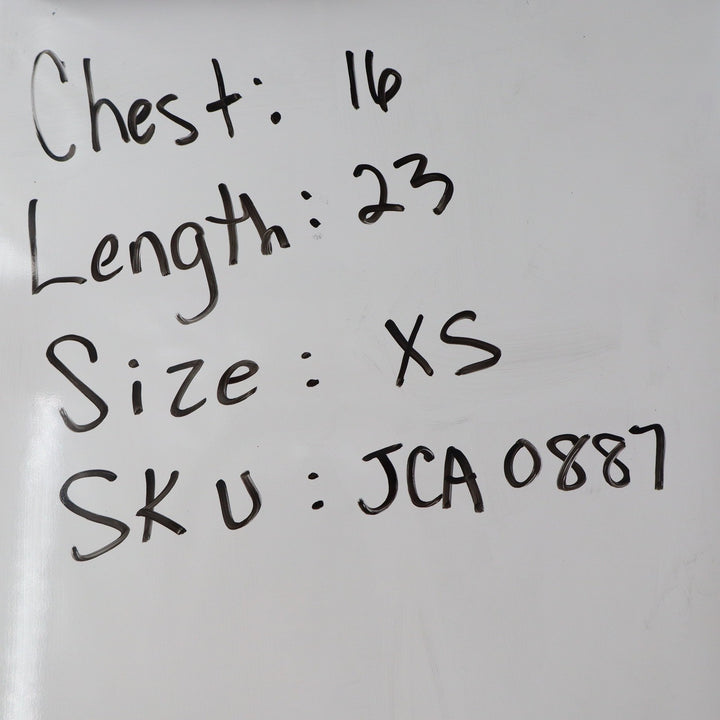 Chest: 16
Length: 23
Size: XS
SKU: JCA0887